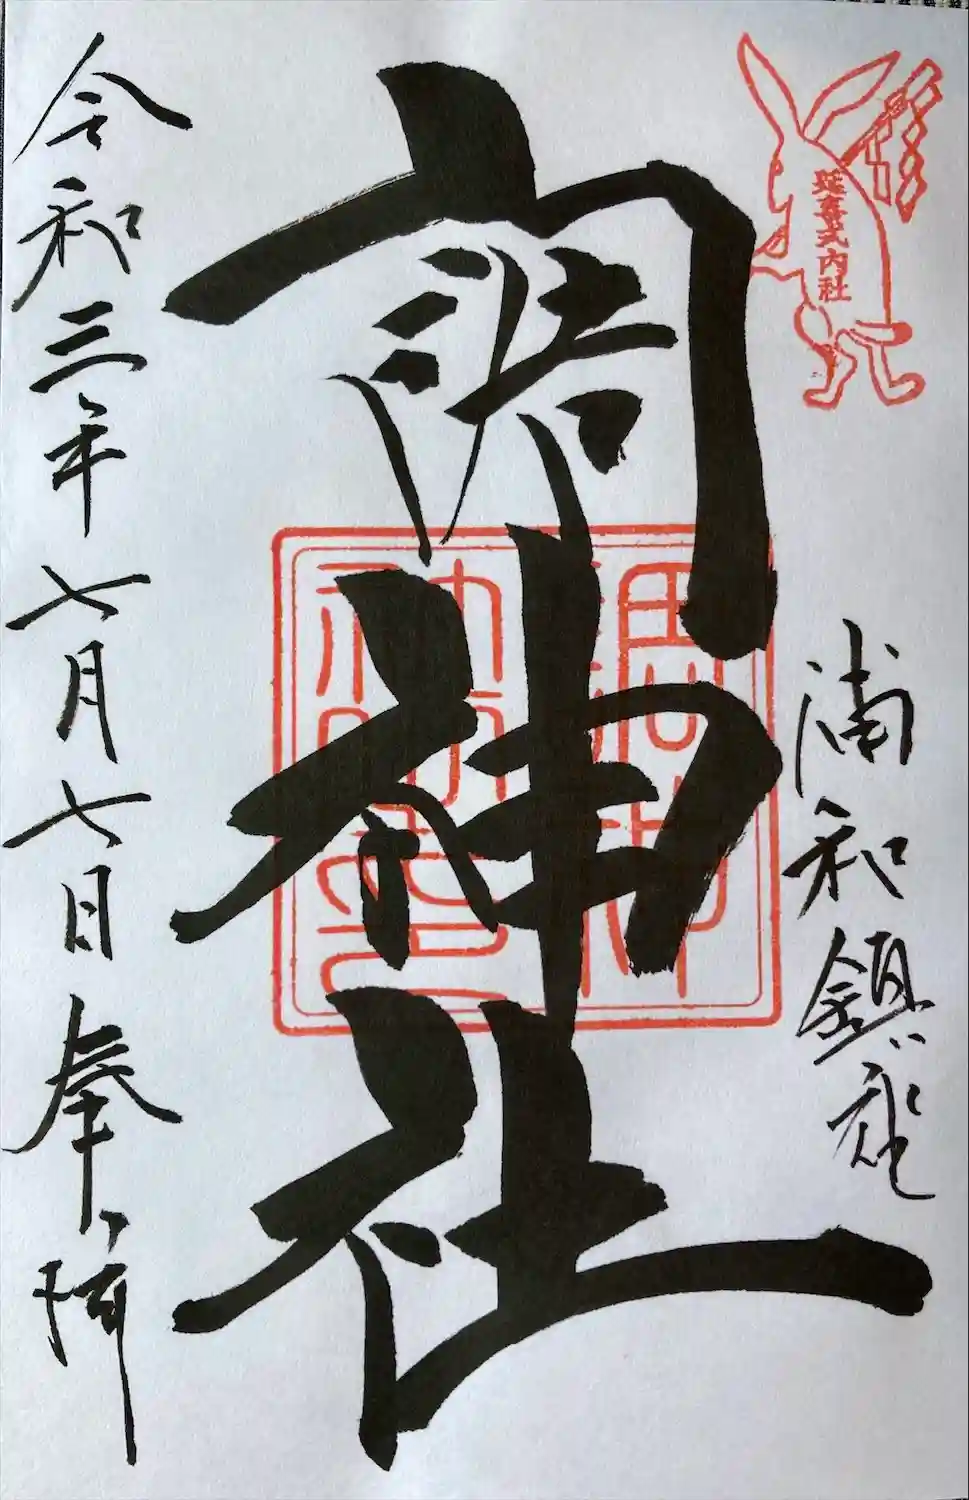 延喜式内社
浦和鎮座
調神社
令和三年七月七日奉拝